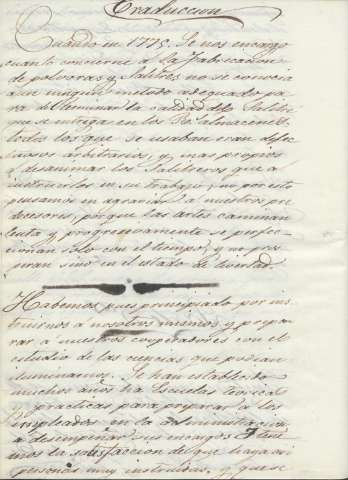 Traduccion
Cuando en 1775. Se nos encargo
cuanto concierne a la fabricacion
de polvoras y Salitres no se conocia
aun ningun metodo adequado pa
ra determinar la calidad del Salitre
que se entrega en los Rs. Almacenes
todos los que se usaban eran defec
tuosos arbitrarios, y mas propios
a desanimar los Salitreros que a
instruirlos en su trabajo; no por esto
pensamos en agraviar a nuestros pre
decesores, porque las artes caminan
lenta y progresivamente se perfec
cionan solo con el tiempo, y no pros
peran sino en el estado de livertad.
Habemos pues principiado por ins
truirnos a nosotros mismos y prepa
rar a nuestros cooperadores con el
estudio de las ciencias que podian
iluminarnos. Se han establecido
muchos años ha Escuelas teoricas
y practicas para preparar a los
empleados en la administracion
a desempeñar sus encargos y tene
mos la satisfaccion de que haya en
personas muy instruidas, y que se